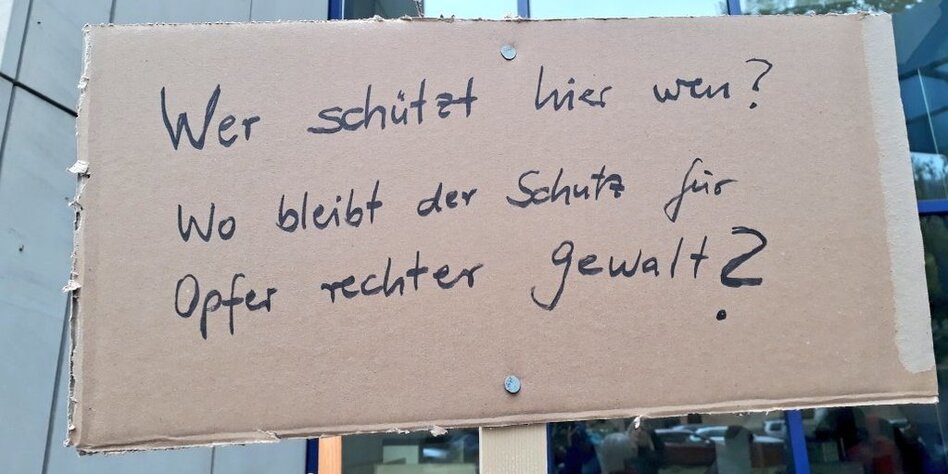 Wer schützt hier wen?
Wo bleibt der Schutz für
Opfer rechter Gewalt?